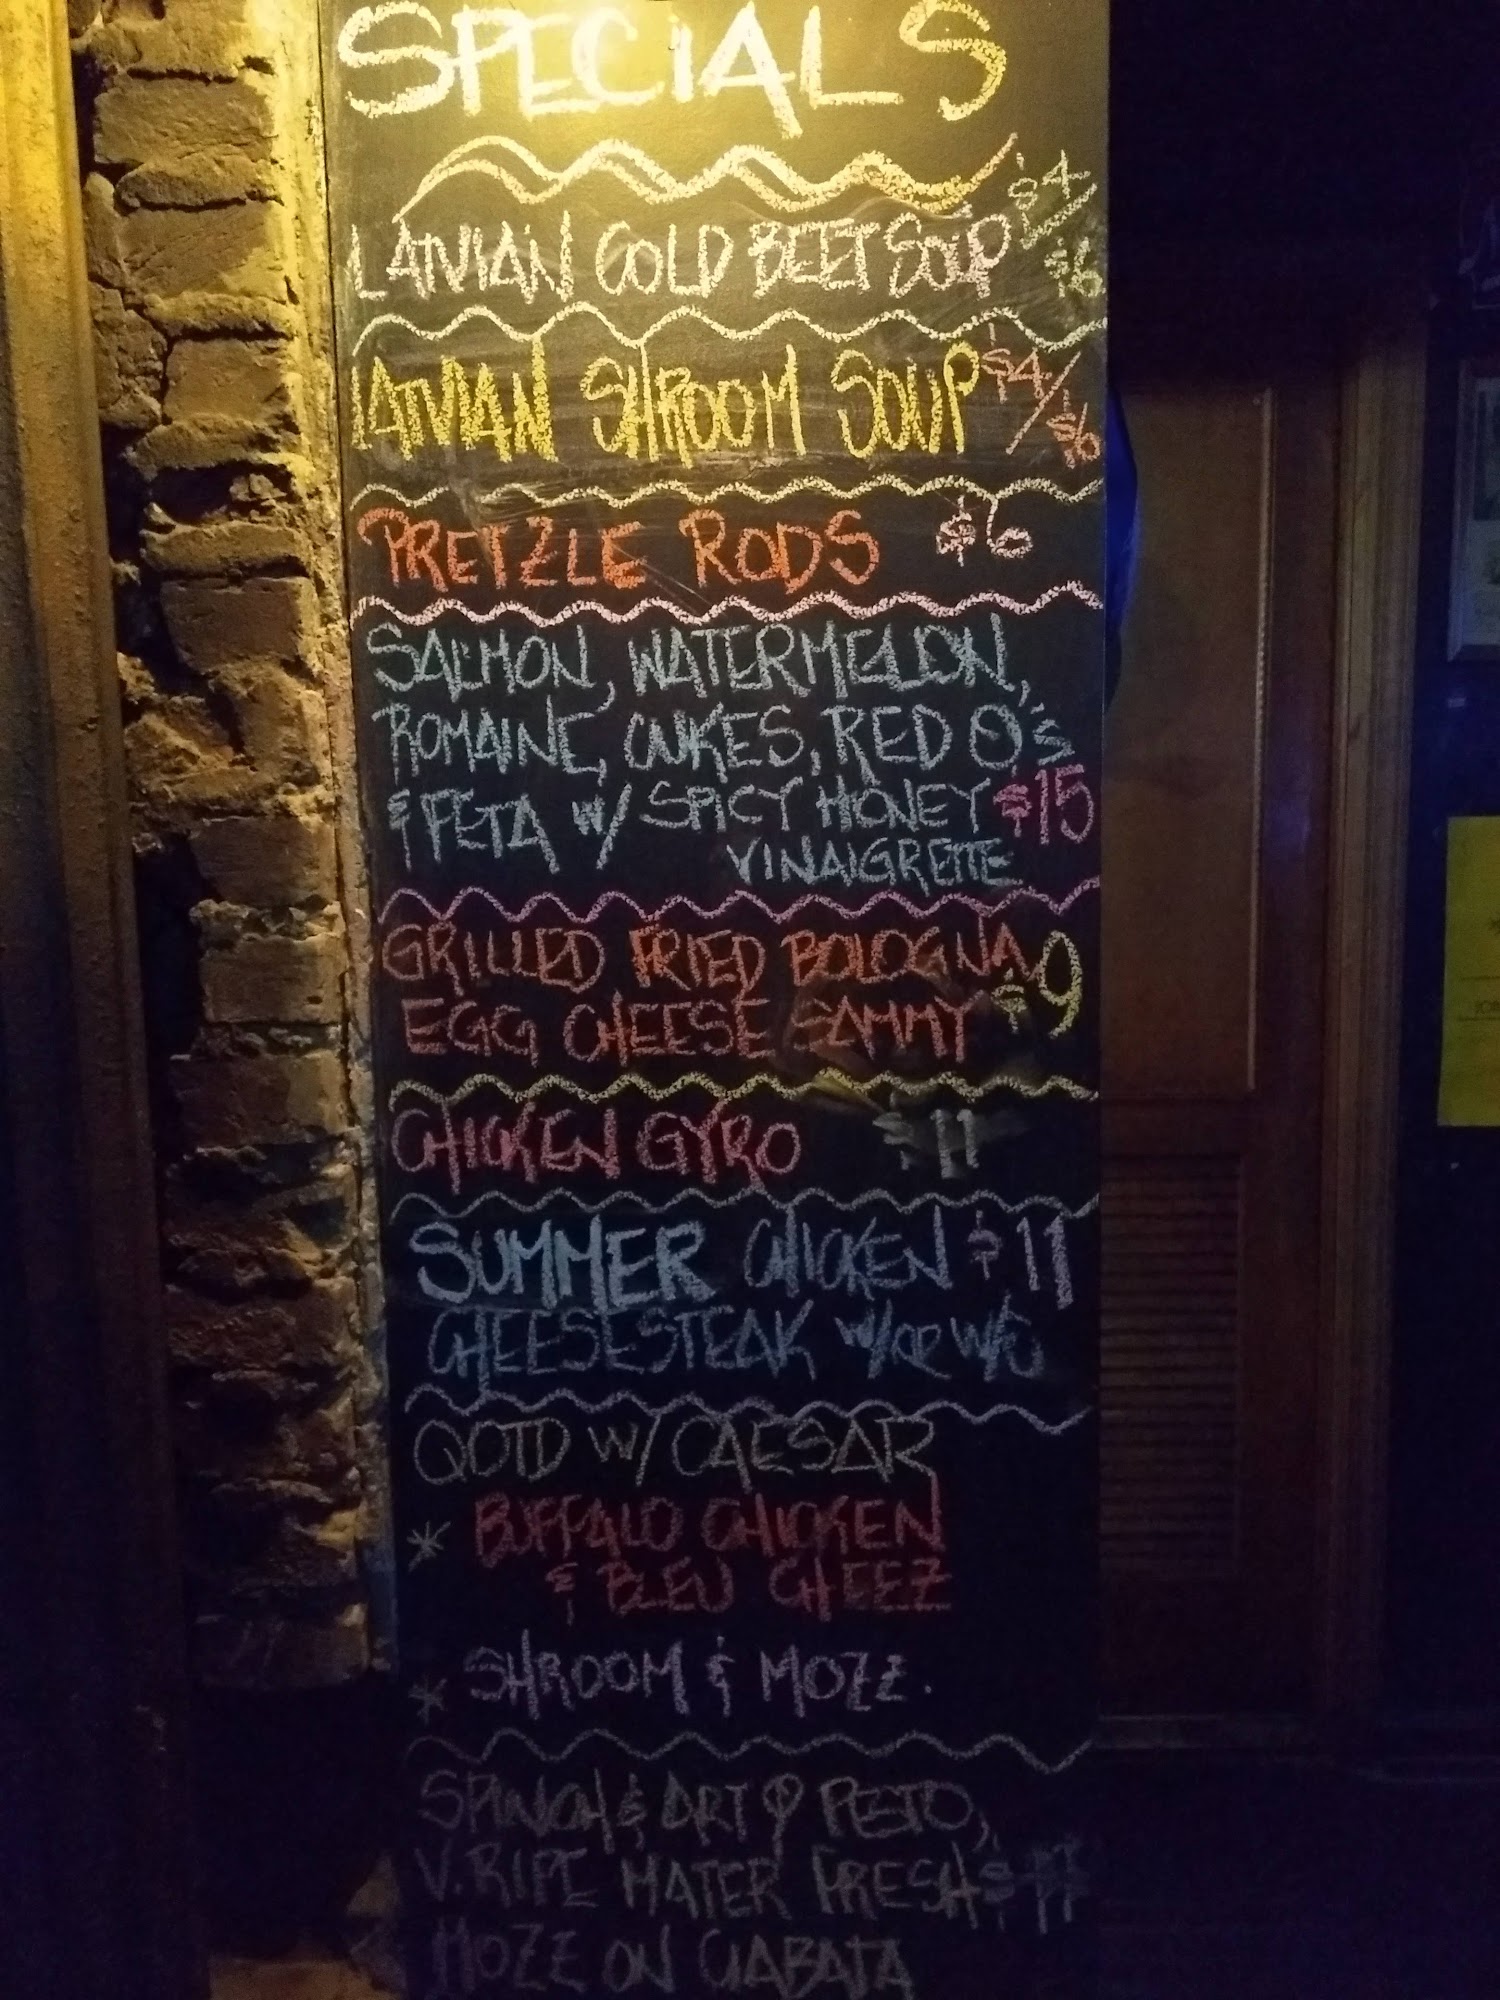 SPECIALS
LATVIAN COLD BEET SOUP $4/$6
LATVIAN SHROOM SOUP $4/$6
PRETZLE RODS $6
SALMON, WATERMELON,
ROMAINE, CUKES, RED O's
& FETA W/ SPICY HONEY $15
VINAIGRETTE
GRILLED FRIED BOLOGNA
EGG CHEESE SAMMY $9
CHICKEN GYRO $11
SUMMER CHICKEN $11
CHEESESTEAK W/OR W/O
QOTD W/ CAESAR
* BUFFALO CHICKEN
& BLEU CHEEZ
* SHROOM & MOZZ.
SPINCH & ART PESTO,
V. RIPE MATER FRESH
MOZZ ON CIABATA